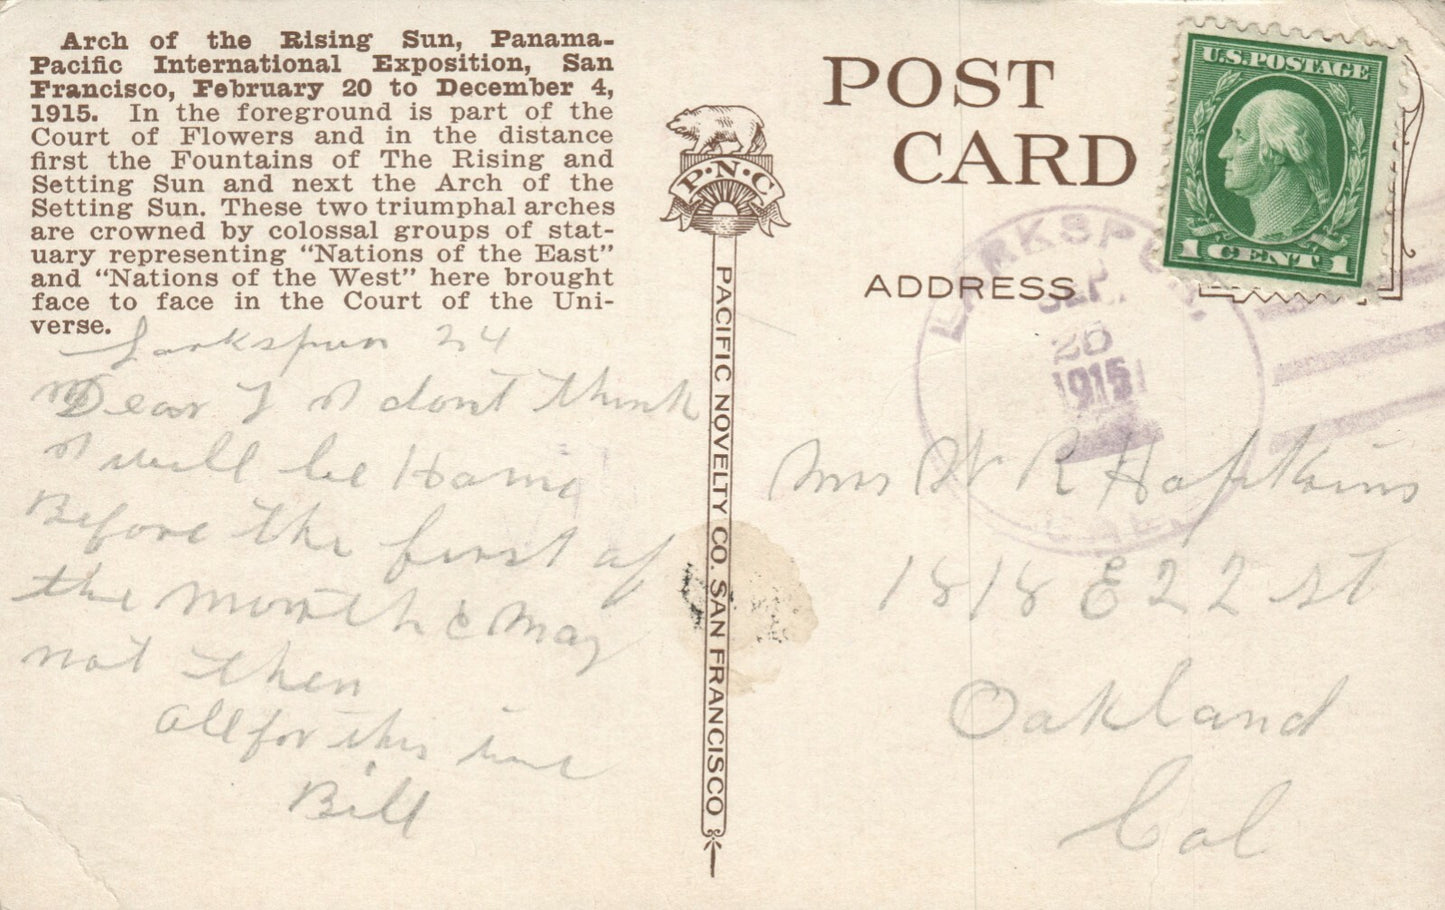 Arch of the Rising Sun, Panama-
Pacific International Exposition, San
Francisco, February 20 to December 4,
1915. In the foreground is part of the
Court of Flowers and in the distance
first the Fountains of The Rising and
Setting Sun and next the Arch of the
Setting Sun. These two triumphal arches
are crowned by colossal groups of stat-
uary representing “Nations of the East”
and “Nations of the West” here brought
face to face in the Court of the Uni-
verse.
Larkspur 24
Dear I dont think
I will be Home
Before the first of
the month & May
not then
All for this time
Bill
P·N·C
PACIFIC NOVELTY CO. SAN FRANCISCO
POST
CARD
ADDRESS
U.S. POSTAGE
1 CENT 1
LARKSPUR
SEP
25
1915
CAL.
Mrs W R Hopkins
1818 E 22 st
Oakland
Cal